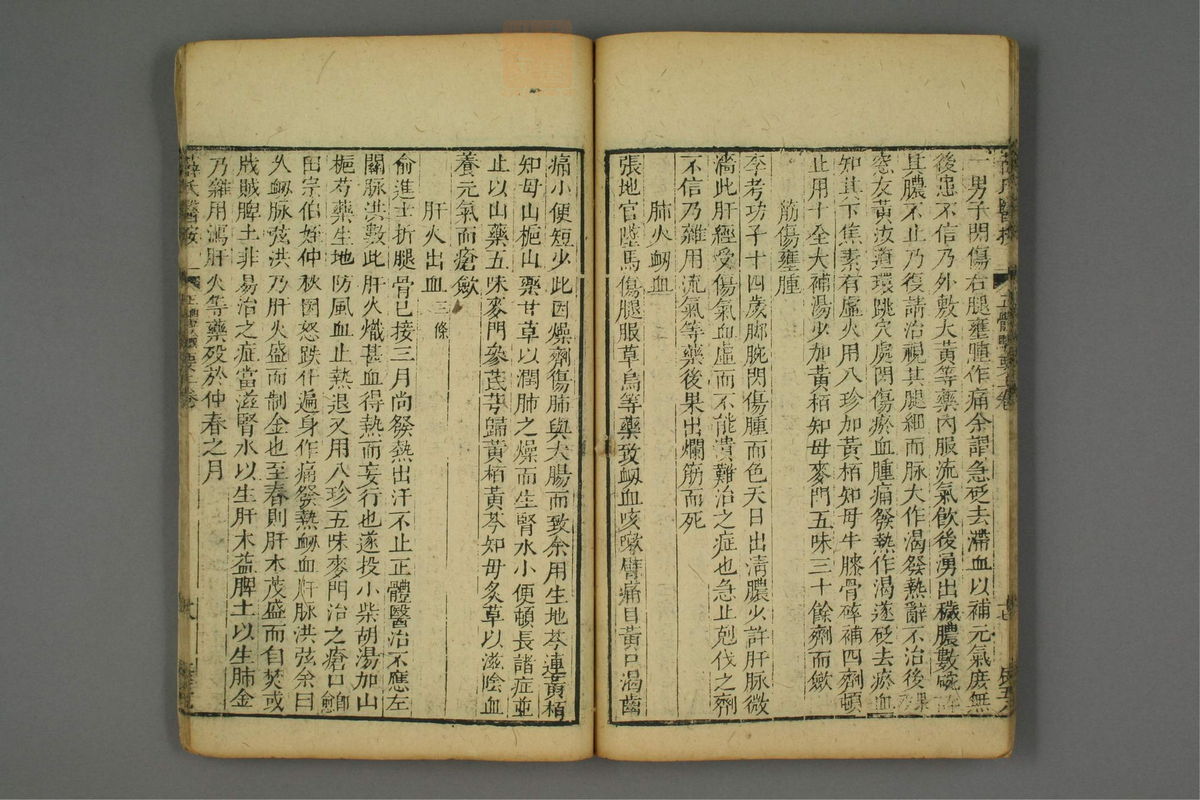 一男子閃傷右腿壅腫作痛余謂急砭去滯血以補元氣庶無
後患不信乃外敷大黃等藥內服流氣飲後湧出穢膿數碗
其膿不止乃復請治視其腿細而脈大作渴發熱辭不治後
窓友黃汝道環跳穴處閃傷瘀血腫痛發熱作渴遂砭去瘀血
知其下焦素有虛火用八珍加黃栢知母牛膝骨碎補四劑頓
止用十全大補湯少加黃栢知母麥門五味三十餘劑而斂
筋傷壅腫
李考功子十四歲脚腕閃傷腫而色天日出淸膿少許肝脈微
濇此肝經受傷氣血虛而不能潰難治之症也急止剋伐之劑
不信乃雜用流氣等藥後果出爛筋而死
肺火衂血
張地官墜馬傷腿服草烏等藥致衂血咳嗽臂痛目黃口渴齒
痛小便短少此因燥劑傷肺與大腸而致余用生地芩連黃栢
知母山梔山藥甘草以潤肺之燥而生腎水小便頓長諸症並
止以山藥五味麥門參芪芎歸黃栢黃芩知母炙草以滋陰血
養元氣而瘡斂
肝火出血 三條
俞進士折腿骨已接三月尚發熱出汗不止正體醫治不應左
關脈洪數此肝火熾甚血得熱而妄行也遂投小柴胡湯加山
梔芍藥生地防風血止熱退又用八珍五味麥門治之瘡口卽愈
田宗伯姪仲秋因怒跌仆遍身作痛發熱衂血肝脈洪弦余曰
久衂脈弦洪乃肝火盛而制金也至春則肝木茂盛而自焚或
戕賊脾土非易治之症當滋腎水以生肝木益脾土以生肺金
乃雜用瀉肝火等藥歿於仲春之月
薛氏醫按